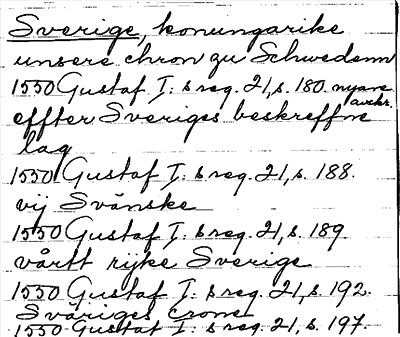 Sverige, konungarike
unsere chron zu Schwedenn
1550 Gustaf I: s reg. 21, s. 180. nyare avskr.
effter Sveriges beskreffne
lag
1550 Gustaf I: s reg. 21, s. 188.
vij Svänske
1550 Gustaf I: s reg. 21, s. 189.
vårtt rijke Sverige
1550 Gustaf I: s reg. 21, s. 192.
Sväriges crone
1550 Gustaf I: s reg. 21, s. 197.